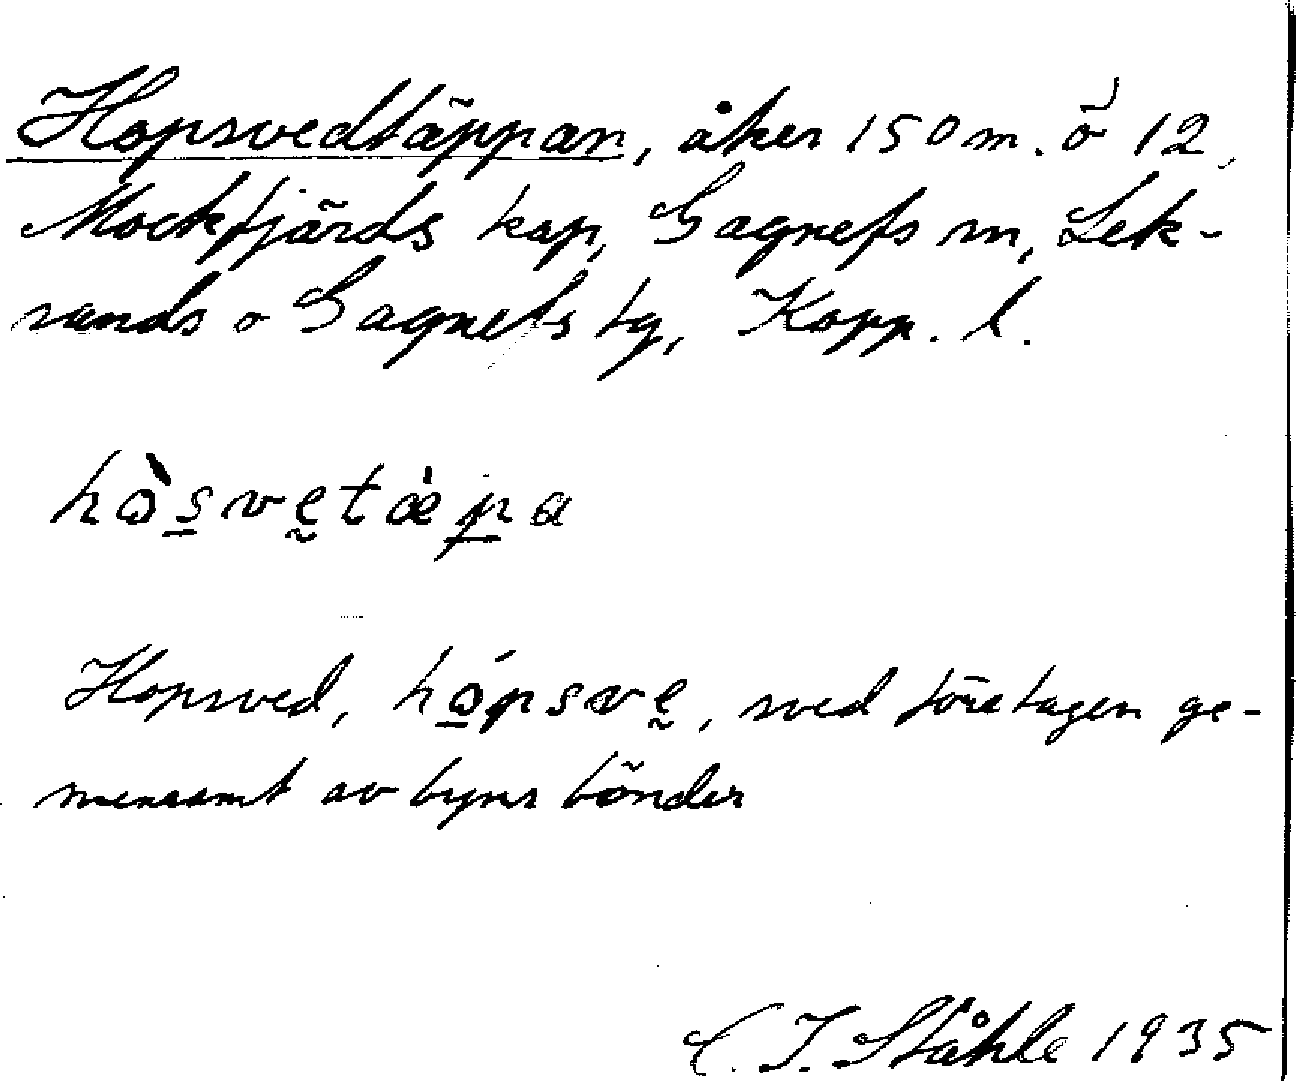 Hopsvedtäppan, åker 150 m. ö 12,
Mockfjärds kap, Gagnefs sn, Lek-
sands o Gagnefs tg, Kopp. l.
hɔ̀s̲vḛtæ̀p̲a
Hopsved, hɔ̲́psvḛ, sved företagen ge-
mensamt av byns bönder
C. I. Ståhle 1935